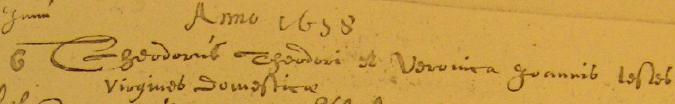 Junii Anno 1658
6 Theodorus Theodori et Veronica Joannis testes
Virgines Domesticæ